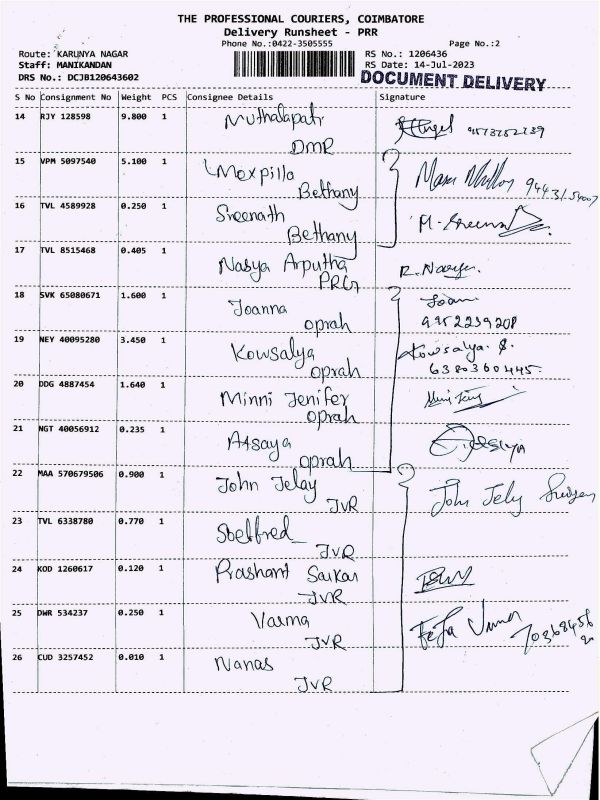 THE PROFESSIONAL COURIERS, COIMBATORE
Delivery Runsheet - PRR
Phone No.:0422-3505555 Page No.:2
Route: KARUNYA NAGAR RS No.: 1206436
Staff: MANIKANDAN RS Date: 14-Jul-2023
DRS No.: DCJB120643602 DOCUMENT DELIVERY
S No Consignment No Weight PCS Consignee Details Signature
14 RJY 128598 9.800 1 Muthalapati
DMR
15 VPM 5097540 5.100 1 Mexpilla
Bethany
16 TVL 4589928 0.250 1 Sreenath
Bethany
17 TVL 8515468 0.405 1 Nasya Arputha
PRG
18 SVK 65080671 1.600 1 Joanna
oprah 9952239208
19 NEY 40095280 3.450 1 Kowsalya Kowsalya. S.
oprah 6380360445
20 DDG 4887454 1.640 1 Minni Jenifer
oprah
21 NGT 40056912 0.235 1 Atsaya
oprah
22 MAA 570679506 0.900 1 John Jelay John Jely
JVR
23 TVL 6338780 0.770 1 Sbelfred
JVR
24 KOD 1260617 0.120 1 Prashant Sarkar
JVR
25 DWR 534237 0.250 1 Varma
JVR
26 CUD 3257452 0.010 1 Nanas
JVR